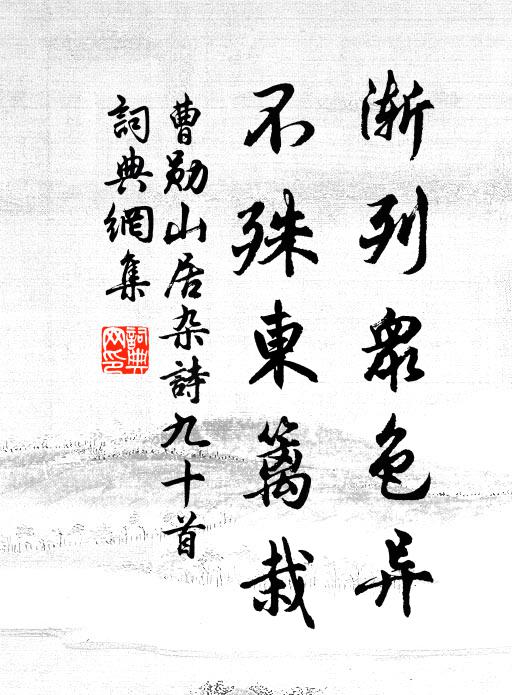 漸列眾色异
不殊東籬栽
曹勛山居杂詩九十首
詞典網集
詞典網印